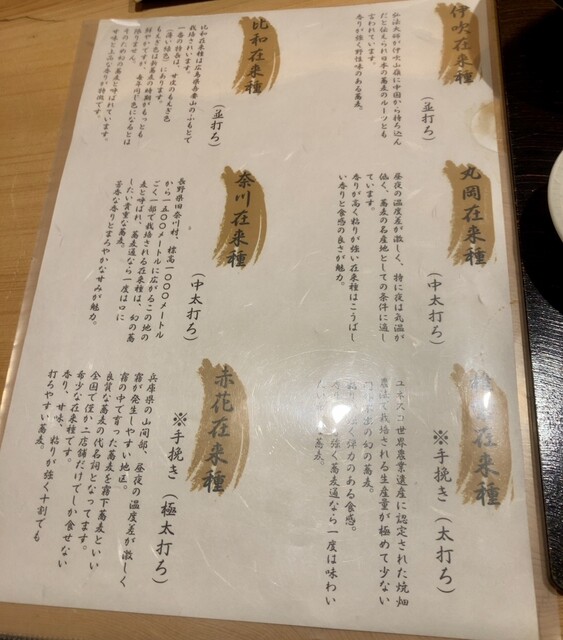 伊吹在来種
(並打ち)
弘法大師が伊吹山嶺に中国から持ち込ん
だと伝えられ日本の蕎麦のルーツとも
言われています。
香りが強く野性味のある蕎麦。
比和在来種
(並打ち)
比和在来種は広島県吾妻山のふもとで
栽培されています。
一番の特長は、甘皮のもえぎ色
(薄い緑色)にあります。
もえぎ色は新蕎麦の時期がもっとも
鮮やかですが、毎年同じ色になるとは
限りません。
そのため幻の蕎麦と呼ばれています。
甘味と上品な香りが特徴です。
丸岡在来種
(中太打ち)
昼夜の温度差が激しく、特に夜は気温が
低く、蕎麦の名産地としての条件に適し
ています。
香りが高く粘りが強い在来種はこうばし
い香りと食感の良さが魅力。
奈川在来種
(中太打ち)
長野県旧奈川村、標高一〇〇〇メートル
から一五〇〇メートルに広がるこの地の
ごく一部で栽培される在来種は、幻の蕎
麦と呼ばれ、蕎麦通なら一度は口に
したい貴重な蕎麦。
芳香な香りとまろやかな甘みが魅力。
在来種
※手挽き(太打ち)
ユネスコ世界農業遺産に認定された焼畑
農法で栽培される生産量が極めて少ない
幻の蕎麦。
弾力のある食感。
強く蕎麦通なら一度は味わい
蕎麦。
赤花在来種
※手挽き(極太打ち)
兵庫県の山間部、昼夜の温度差が激しく
霧が発生しやすい地区。
霧の中で育った蕎麦を霧下蕎麦といい
良質な蕎麦の代名詞となってます。
全国で僅か二店舗だけでしか食せない
希少な在来種です。
香り、甘味、粘りが強く十割でも
打ちやすい蕎麦。